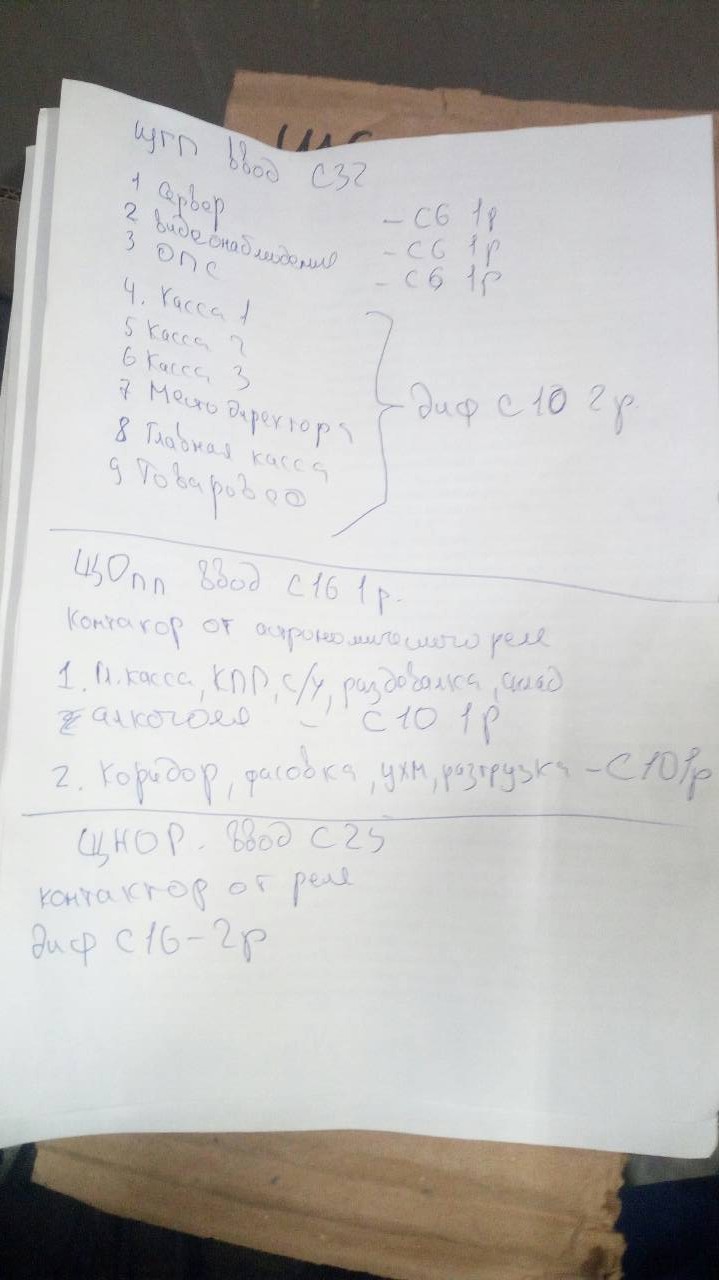 ЩГП ввод С32
1 Сервер - С6 1р
2 видеонаблюдение - С6 1р
3 ОПС - С6 1р
4. Касса 1
5 Касса 2
6 Касса 3
7 Место директора
8 Главная касса
9 Товаровед
диф С10 2р.
ЩОпп ввод С16 1р.
контактор от астрономического реле
1. Гл. касса, КПП, с/у, раздевалка, склад
алкоголя - С10 1р
2. Коридор, фасовка, ухм, разгрузка - С10 1р
ЩНОР. Ввод С25
контактор от реле
диф С16-2р